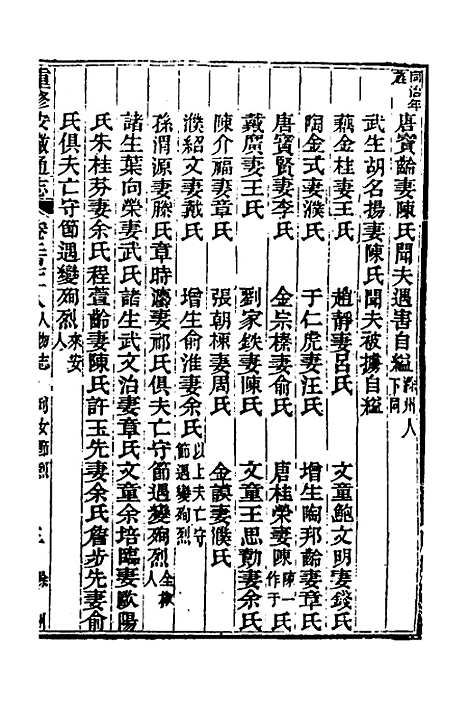 同治年
唐寶齡妻陳氏聞夫遇害自縊滁州人下同
武生胡名揚妻陳氏聞夫被擄自縊
藕金桂妻王氏　趙靜妻呂氏　文童鮑文明妻錢氏
陶金式妻濮氏　于仁虎妻汪氏　增生陶邦齡妻章氏
唐寶賢妻李氏　金崇榛妻俞氏　唐桂榮妻陳陳一作于氏
戴廣妻王氏　劉家鉄妻陳氏　文童王思勤妻余氏
陳介福妻章氏　張朝棟妻周氏　金謨妻濮氏
濮紹文妻戴氏　增生俞淮妻余氏以上夫亡守節遇變殉烈
孫渭源妻滕氏章時濤妻祁氏俱夫亡守節遇變殉烈全椒人
諸生葉向榮妻武氏諸生武文治妻章氏文童余培臨妻歐陽
氏朱桂芬妻余氏程萱齡妻陳氏許玉先妻余氏詹步先妻俞
氏俱夫亡守節遇變殉烈來安人
重修安徽通志　卷　人物志　列女　節烈